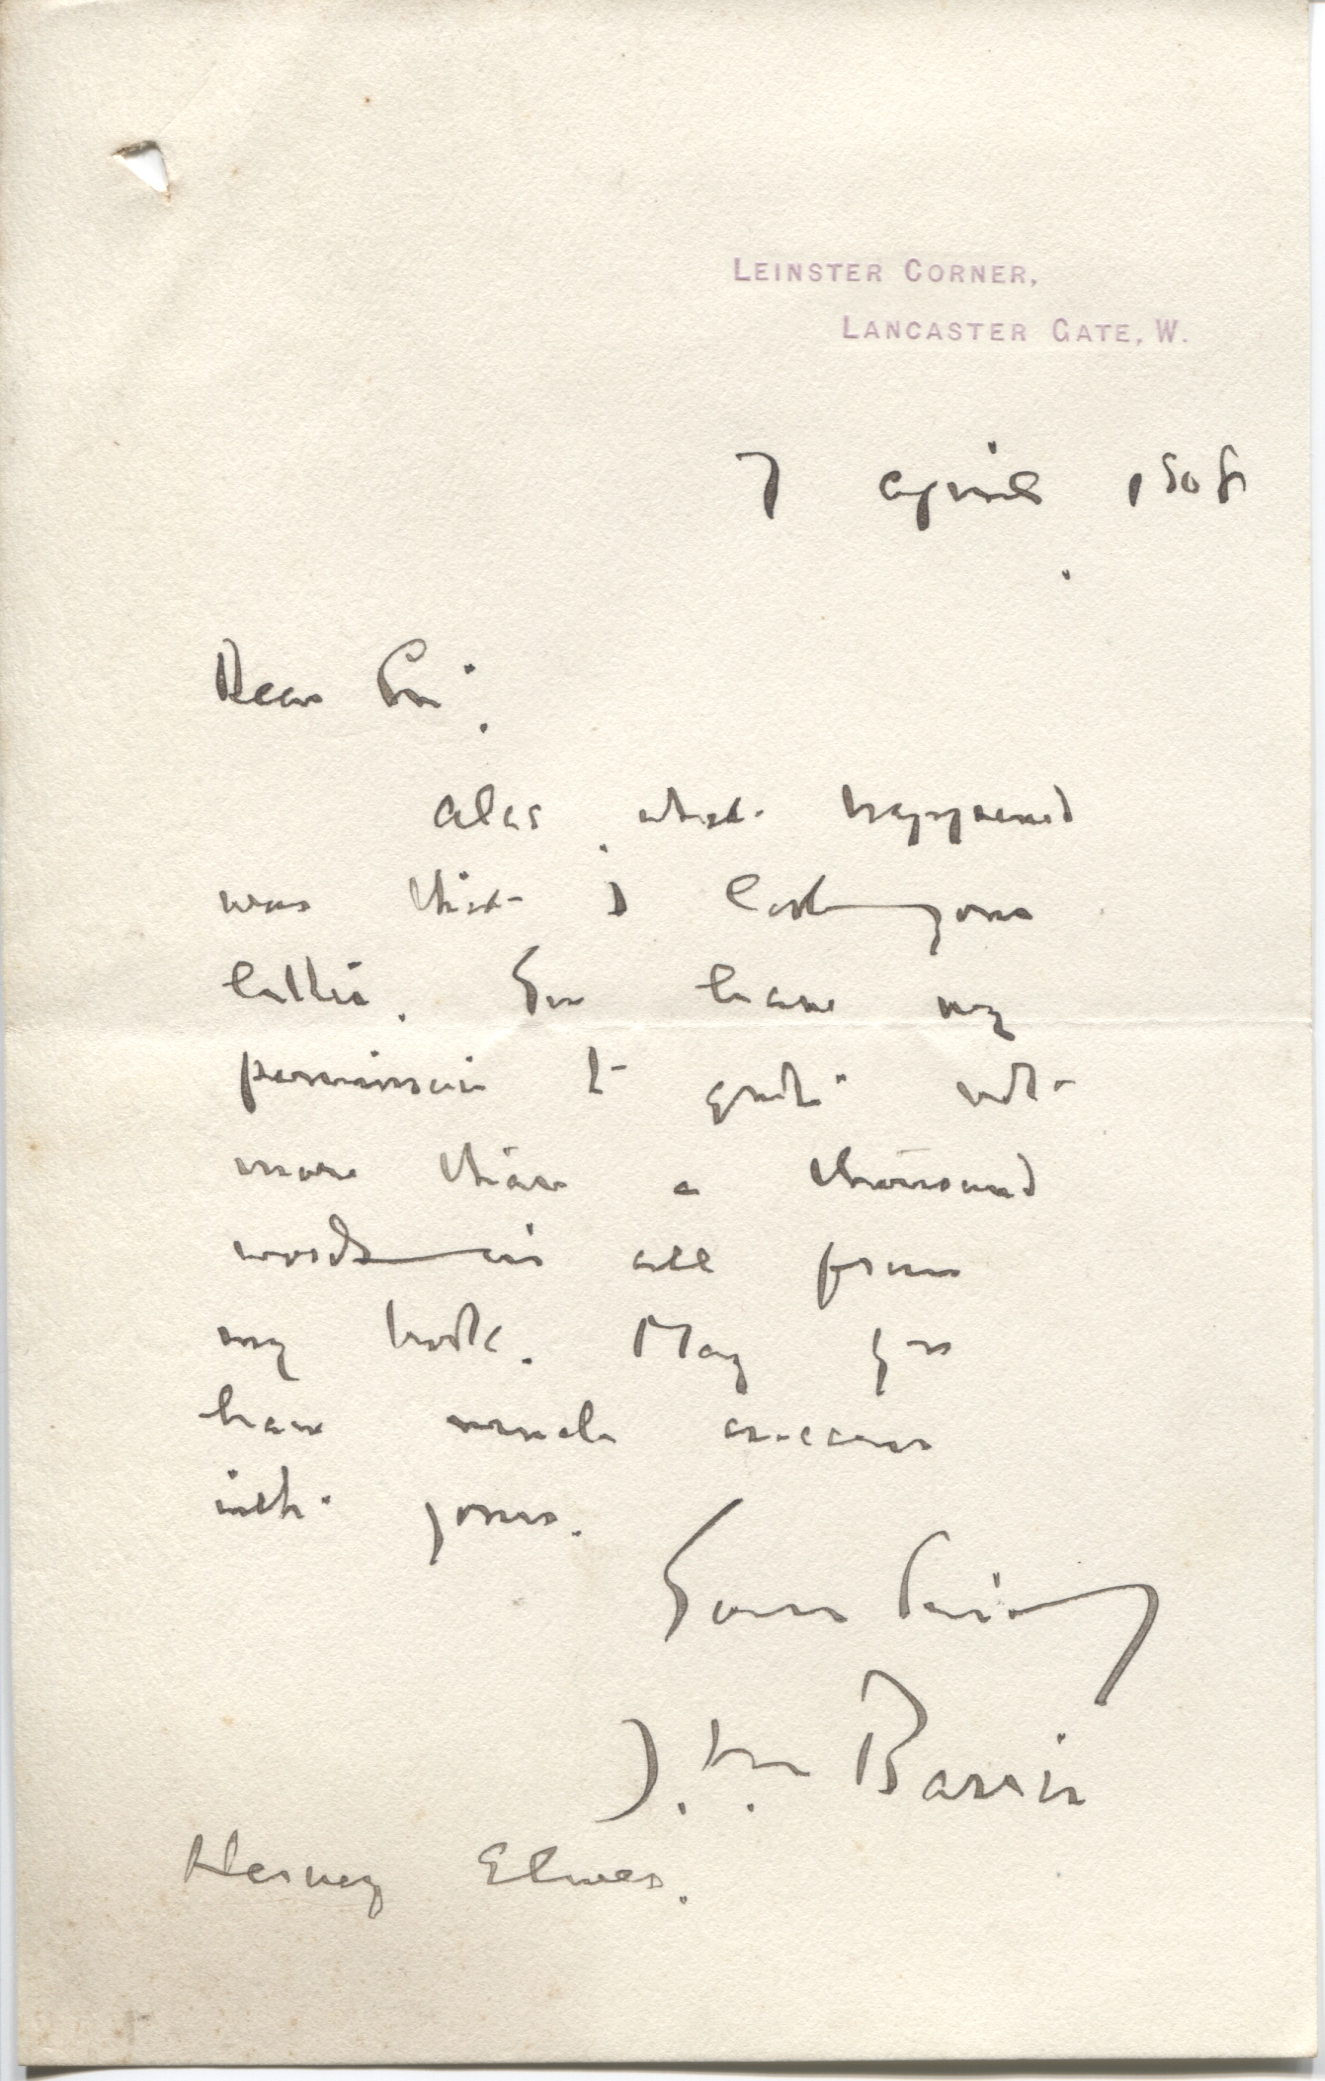 LEINSTER CORNER,
LANCASTER GATE, W.
7 April 1908
Dear Sir,
Alas, what happened
was that I lost your
letter. You have my
permission to quote not
more than a thousand
words in all from
my book. May you
have much success
with yours.
Yours sincerely
J. M. Barrie
Hervey Elwes.